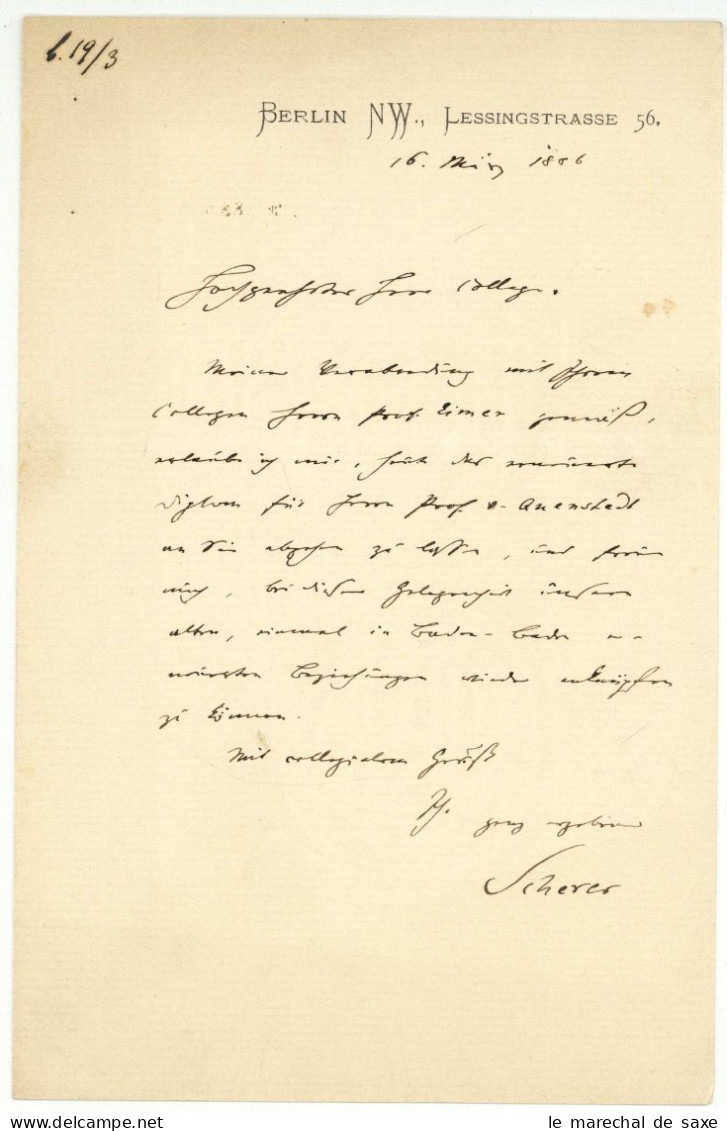 b. 19/3
BERLIN NW., LESSINGSTRASSE 56.
16. März 1886
Hochgeehrter Herr College.
Meiner Verabredung mit Ihrem
Collegen Herrn Prof. Eimer gemäß,
erlaube ich mir, heute das erneuerte
Diplom für Herrn Prof. v. Quenstedt
an Sie abgehen zu lassen, und freue
mich, bei dieser Gelegenheit unsere
alten, einmal in Baden-Baden er-
neuerten Beziehungen wieder anknüpfen
zu können.
Mit collegialem Gruß
Ihr ganz ergebener
Scherer
le marechal de saxe